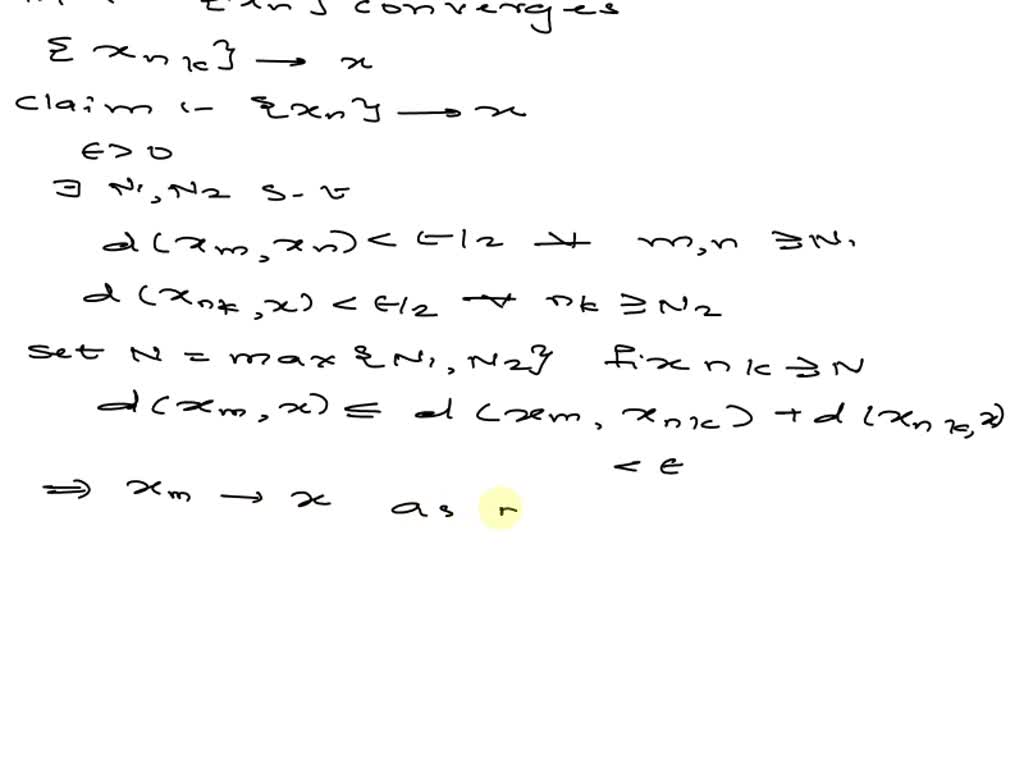 converges
{xnk} → x
claim :- {xn} → x
ϵ > 0
∃ N1, N2 s-t
d(xm, xn) < ϵ/2 ∀ m,n ≥ N1
d(xnk, x) < ϵ/2 ∀ nk ≥ N2
set N = max {N1, N2} fix nk ≥ N
d(xm, x) ≤ d(xm, xnk) + d(xnk, x)
< ϵ
⇒ xm → x as